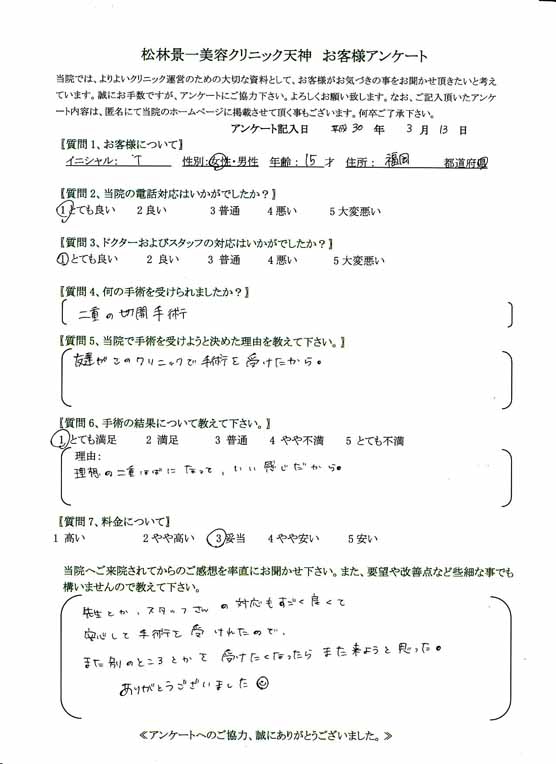 松林景一美容クリニック天神　お客様アンケート
当院では、よりよいクリニック運営のための大切な資料として、お客様がお気づきの事をお聞かせ頂きたいと考え
ています。誠にお手数ですが、アンケートにご協力下さい。よろしくお願い致します。なお、ご記入頂いたアンケ
ート内容は、匿名にて当院のホームページに掲載させて頂く事もございます。何卒ご了承下さい。
アンケート記入日　平成 30 年　3 月 13 日
〖質問1、お客様について〗
イニシャル：　T　性別：女性・男性　年齢：15 才　住所：　福岡　都道府県
〖質問2、当院の電話対応はいかがでしたか？〗
1とても良い　2 良い　3 普通　4 悪い　5 大変悪い
〖質問3、ドクターおよびスタッフの対応はいかがでしたか？〗
1とても良い　2 良い　3 普通　4 悪い　5 大変悪い
〖質問4、何の手術を受けられましたか？〗
二重の切開手術
〖質問5、当院で手術を受けようと決めた理由を教えて下さい。〗
友達がこのクリニックで手術を受けたから。
〖質問6、手術の結果について教えて下さい。〗
1とても満足　2 満足　3 普通　4 やや不満　5 とても不満
理由：
理想の二重はばになって、いい感じだから。
〖質問7、料金について〗
1 高い　2 やや高い　3妥当　4 やや安い　5 安い
当院へご来院されてからのご感想を率直にお聞かせ下さい。また、要望や改善点など些細な事でも
構いませんので教えて下さい。
先生とか、スタッフさんの対応もすごく良くて
安心して手術を受けれたので、
また別のところとかを受けたくなったらまた来ようと思った。
ありがとうございました☺
≪アンケートへのご協力、誠にありがとうございました。≫